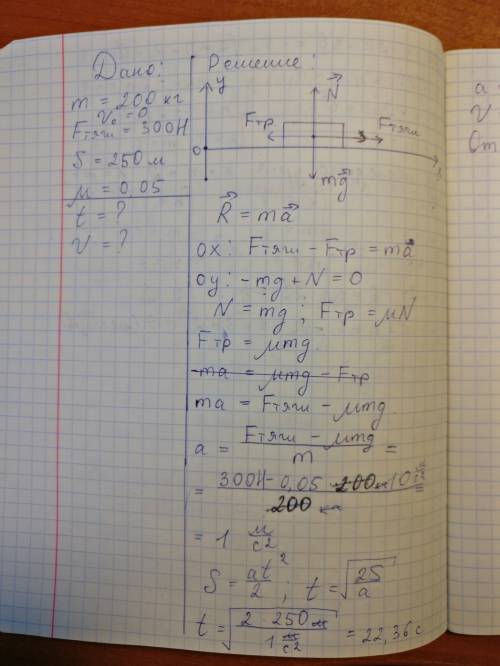 Дано:
m = 200 кг
v₀ = 0
Fтяги = 300Н
S = 250 м
μ = 0,05
t = ?
v = ?
Решение:
y
N
Fтр
Fтяги
0
x
mg
R = ma
ox: Fтяги - Fтр = ma
oy: -mg + N = 0
N = mg ; Fтр = μN
Fтр = μmg.
-ma = μmg - Fтр
ma = Fтяги - μmg.
a = (Fтяги - μmg) / m =
= (300Н - 0,05 · 200кг · 10 м/с²) / 200 кг =
= 1 м/с²
S = at²/2 ; t = √(2S/a)
t = √(2 · 250 м / 1 м/с²) = 22,36 с
a =
v
От